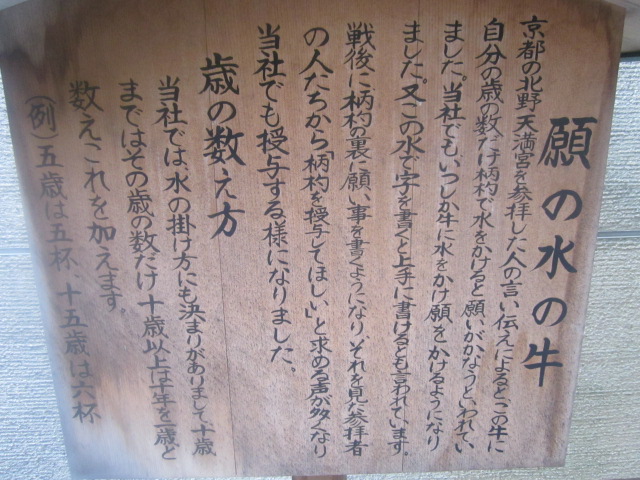 願の水の牛
京都の北野天満宮を参拝した人の言い伝えによると、この牛に
自分の歳の数だけ柄杓で水をかけると願いがかなうといわれてい
ました。当社でもいつしか牛に水をかけ願をかけるようになり
ました。又この水で字を書くと上手に書けるとも言われています。
戦後に柄杓の裏に願い事を書くようになり、それを見た参拝者
の人たちから「柄杓を授与してほしい」と求める声が多くなり
当社でも授与する様になりました。
歳の数え方
当社では、水の掛け方にも決まりがありまして、十歳
まではその歳の数だけ十歳以上は十年を一歳と
数えこれを加えます。
（例）五歳は五杯、十五歳は六杯